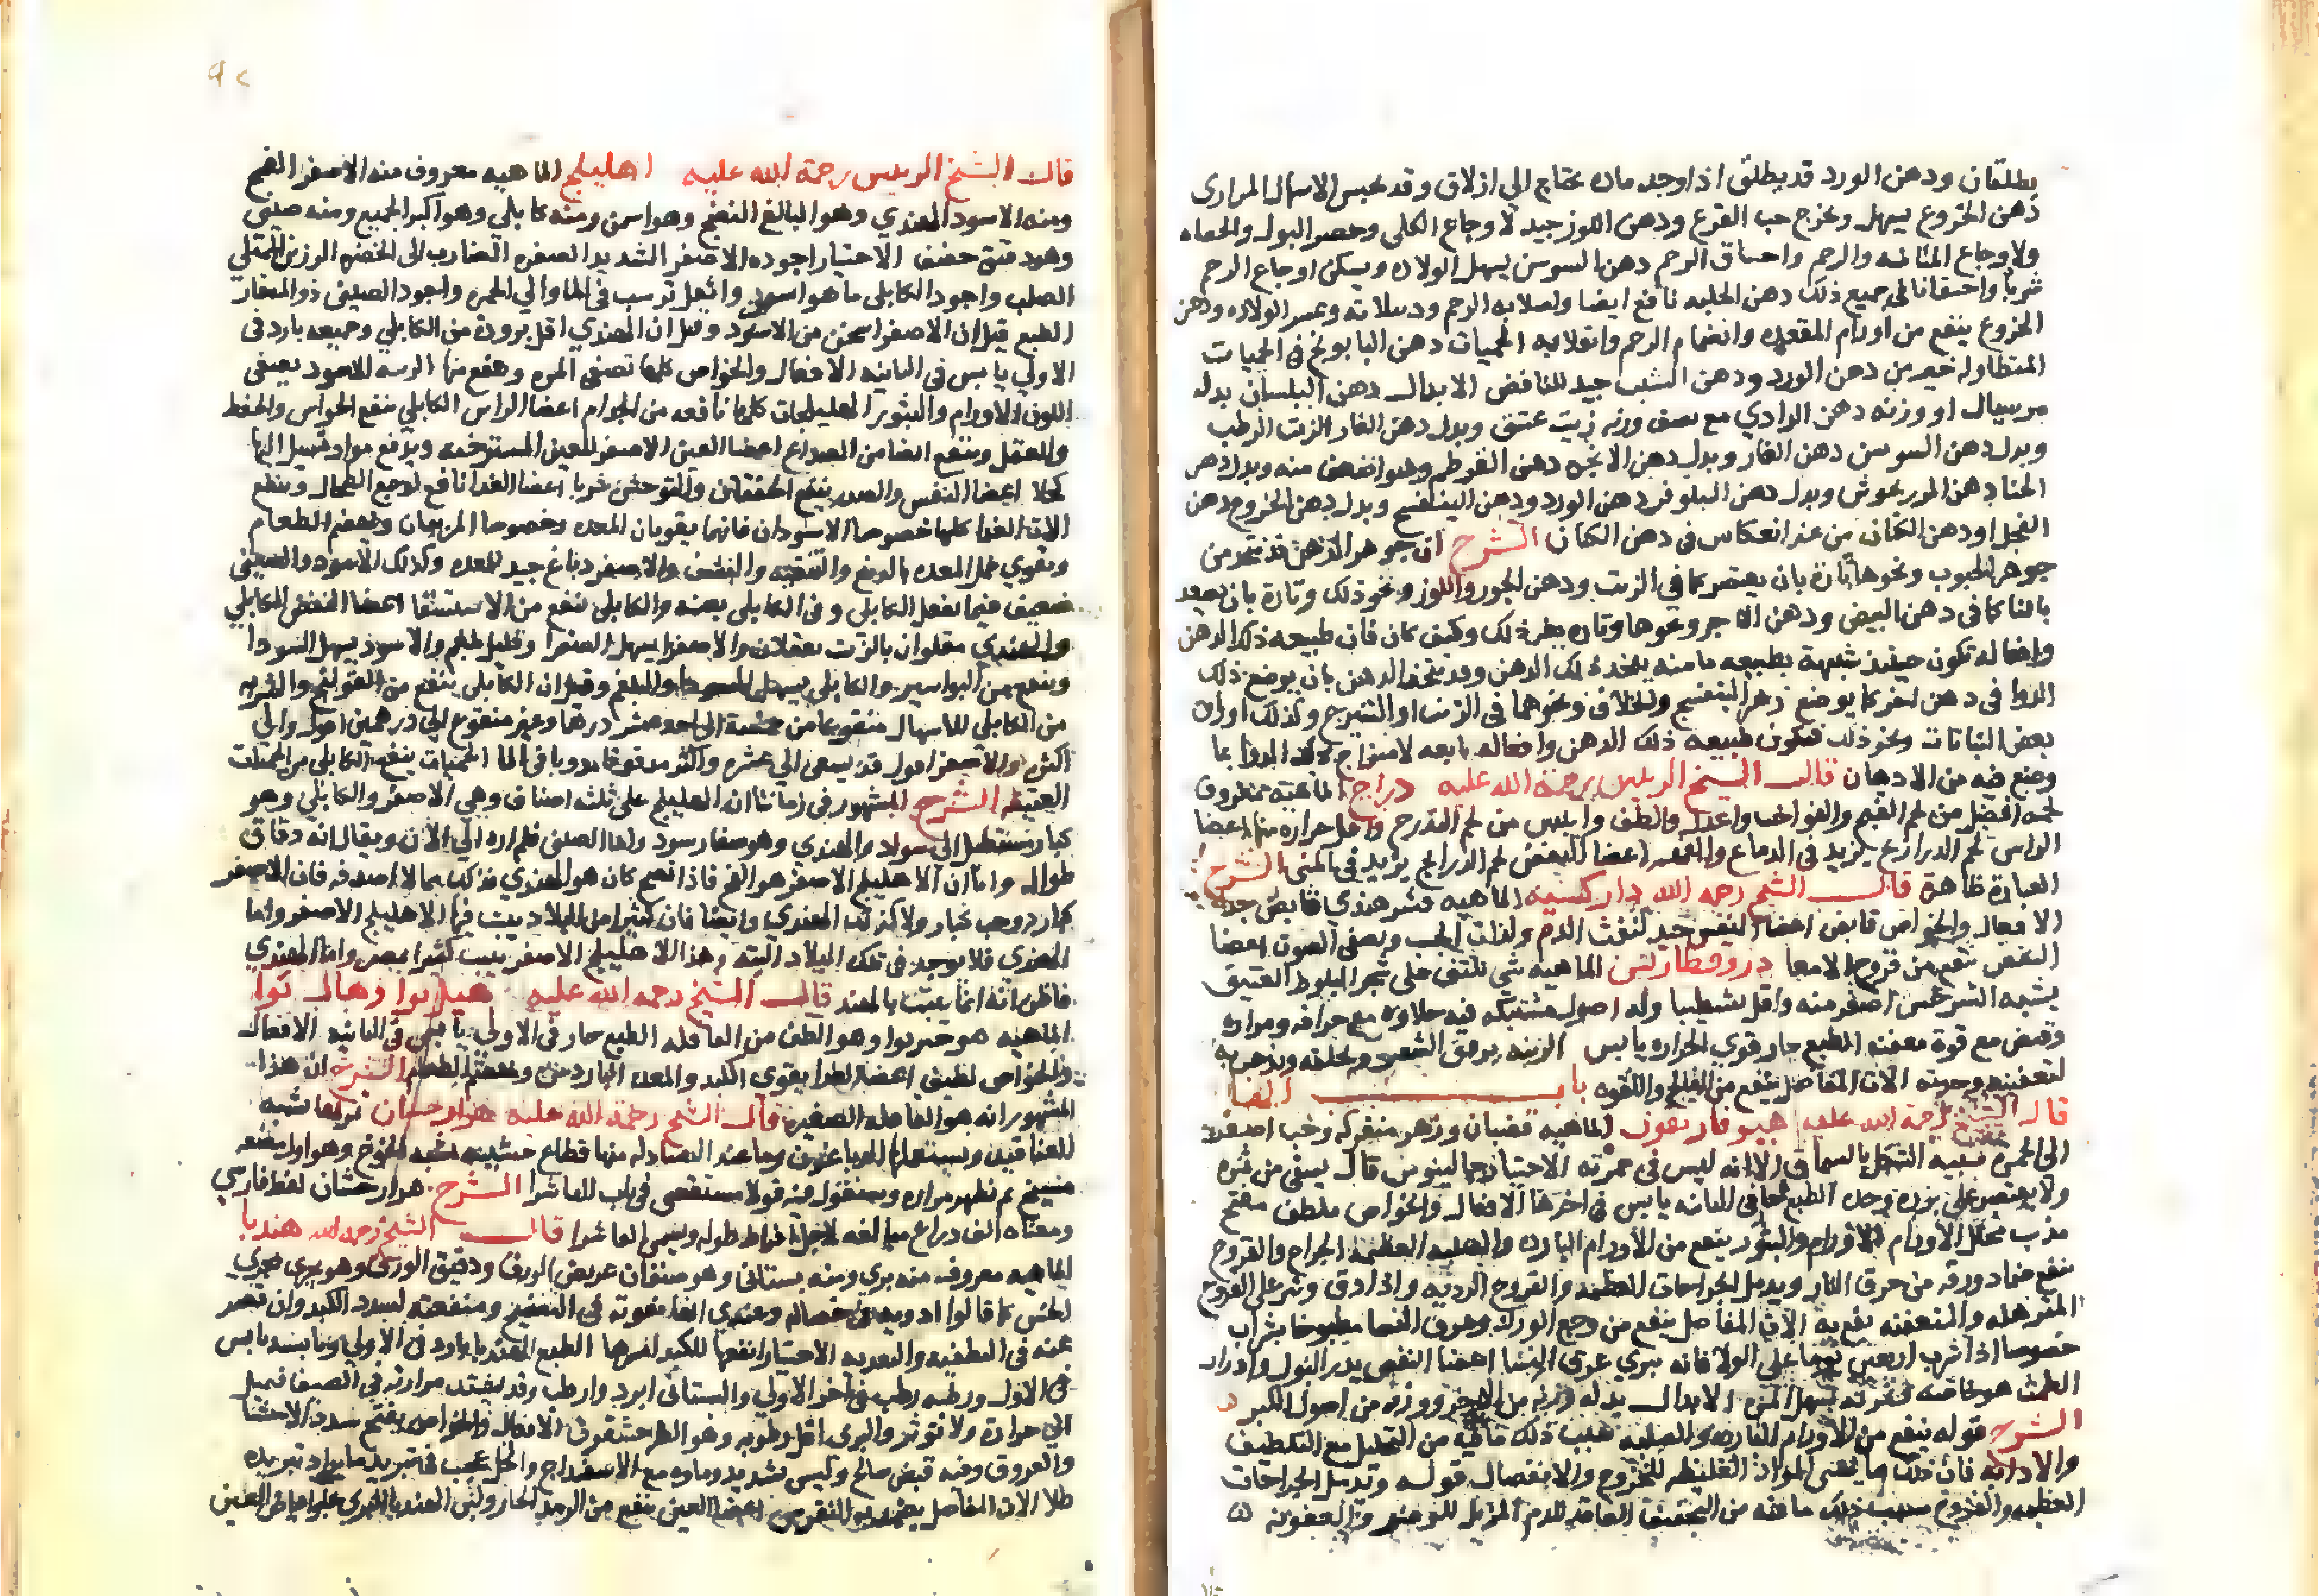 يطلقان ودهن الورد قد يطلق اذا وجد ماده تحتاج الي ازلاق وقد يحبس الاسهال المراري
دهن الخروع يسهل ويخرج حب القرع ودهن اللوز جيد لاوجاع الكلى وحصر البول والحصاه
ولاوجاع المثانه والرحم واختناق الرحم دهن السوسن يسهل الولاده ويسكن اوجاع الرحم
شربا واحتقانا في جميع ذلك دهن الحلبه نافع ايضا ولصلابه الرحم ودبيلاته وعسر الولاده ودهن
الخروع ينفع من اورام المقعده وانضمام الرحم وانقلابه الحميات دهن البابونج في الحميات
المتطاوله خير من دهن الورد ودهن الشبت جيد للنافض الابدال دهن البلسان بدله
او وزنه دهن الرادي مع نصف وزنه زيت عتيق وبدل دهن الغار الزيت الرطب
وبدل دهن السوسن دهن الغار وبدل دهن الانجره دهن القرطم وهو اضعف منه وبدل دهن
الحنا دهن المرزنجوش وبدل دهن النيلوفر دهن الورد ودهن البنفسج وبدل دهن الخروع دهن
الفجل او دهن الكتان من غير انعكاس في دهن الكتان الشرح ان جوهر الدهن قد يتخذ من
جوهر الحبوب ونحوها تارة بان يعصر كما في الزيت ودهن الجوز واللوز ونحو ذلك وتارة بان يصعد
بالنار كما في دهن البيض ودهن الاجر ونحوها وتاره بغير ذلك وكيف كان فان طبيعه ذلك الدهن
وافعاله تكون حينئذ شبيهة بطبيعه ما منه يتخذ ذلك الدهن وقد يتخذ الدهن بان يوضع ذلك
الدوا في دهن اخر كما يوضع زهر البنفسج والخلاف ونحوهما في الزيت او الشيرج وكذلك اوراق
بعض النباتات ونحو ذلك فتكون طبيعه ذلك الدهن وافعاله تابعه لامتزاج ذلك الدوا بما
وضع فيه من الادهان قال الشيخ الرييس رحمة الله عليه دراج الماهيه معروف
لحمه افضل من لحم القبج والفواخت واعدل والطف وايبس من لحم التدرج واقل حراره منها اعضا
الراس لحم الدراج يزيد في الدماغ والفهم اعضا النفض لحم الدراج يزيد في المني الشرح
العبارة ظاهرة قال الشيخ رحمه الله دار كيسه الماهيه قشر هندي قابض جدا
الافعال والخواص قابض اعضا النفس جيد لنفث الدم ولذات الجنب ويصفي الصوت اعضا
النفض ينفع من قروح الامعا دروفطارس الماهيه شي يلتف على شجر البلوط العتيق
يشبه السرخس اصغر منه واقل تشطيبا وله اصول مشتبكه فيه حلاوه مع حرافه ومراره
وقبض مع قوة معفنه الطبع حار قوي الحراره يابس الزينه يرقق الشعر ويحلقه ويذهب به
لتعفينه وحدته الات المفاصل ينفع من الفالج واللقوه باب الها
قال الشيخ رحمة الله عليه هيوفاريقون الماهيه قضبان وزهر متفركه وخب اصفر
الى الحمره شبيه الشكل بالسماق الا انه ليس في حمرته الاختيار جالينوس قال يسقى من ثمره
ولا يقتصر على بزره وحده الطبع حار في الثانيه يابس في اخرها الافعال والخواص ملطف مفتح
مذيب محلل الاورام الاورام والبثور ينفع من الاورام البارده والصلبه العظيمه الجراح والقروح
ينفع ضماد ورقه من حرق النار ويدمل الجراحات العظيمه والقروح الرديه واذا دق ونثر على القروح
المترهله والمتعفنه نفع به الات المفاصل ينفع من وجع الورك وعرق النسا مطبوخا بشراب
خصوصا اذا شرب اربعين يوما على الولا فانه يبري عرق النسا اعضا النفض يدر البول وادرار
الطمث هو بخاصته ثمرته تسهل المره الابدال بدله وزنه من الاذخر ووزنه من اصول الكبر
الشرح قوله ينفع من الاورام البارده والصلبه سبب ذلك ما فيه من التحليل مع التلطيف
والاذابه فان ذلك مما يهيي المواد الغليظه للخروج والانفصال قوله وتدمل الجراحات
العظيمه والقروح سبب ذلك ما فيه من التجفيف العاقد للدم المزيل للوضر والعفونه
٩٢
قال الشيخ الرييس رحمة الله عليه اهليلج الماهيه معروف منه الاصفر الفج
ومنه الاسود الهندي وهو البالغ النضج وهو اسمن ومنه كابلي وهو اكبر الجميع ومنه صيني
وهو دقيق خفيف الاختيار اجوده الاصفر الشديد الصفره الضارب الى الخضره الرزين الممتلي
الصلب واجود الكابلي ما هو اسمن واثقل ترسب في الما والي الحمره واجود الصيني ذو المنقار
الطبع قيل ان الاصفر اسخن من الاسود وقيل ان الهندي اقل برودة من الكابلي وجميعه بارد في
الاولي يابس في الثانيه الافعال والخواص كلها تطفي المره وينفع منها الزينه الاسود يصفي
اللون الاورام والبثور الهليلجات كلها نافعه من الجذام اعضا الراس الكابلي ينفع الحواس والحفظ
والعقل وينفع ايضا من الصداع اعضا العين الاصفر للعين المسترخيه ويدفع مواد تسيل اليها
كحلا اعضا النفس والصدر ينفع الخفقان والتوحش شربا اعضا الغذا نافع لوجع الطحال وينفع
الات الغذا كلها خصوصا الاسودان فانهما يقويان المعده وخصوصا المربيان ويهضم الطعام
ويقوي خمل المعده بالدبغ والتنقيه والنشف والاصفر دباغ جيد للمعده وكذلك الاسود والصيني
ضعيف فيما يفعل الكابلي وفي الكابلي تغثيه والكابلي ينفع من الاستسقا اعضا النفض الكابلي
والهندي مقلوان بالزيت يعقلان والاصفر يسهل الصفرا وقليل بلغم والاسود يسهل السودا
وينفع من البواسير والكابلي يسهل السودا والبلغم وقيل ان الكابلي ينفع من القولنج والشربه
من الكابلي للاسهال منقوعا من خمسة الى احد عشر درهما وغير منقوع الي درهمين اقول والى
اكثر والاصفر اقول قد يسقى الي عشره واكثر مدقوقا مدوفا في الما الحميات ينفع الكابلي من الحميات
العتيقه الشرح المشهور في زماننا ان الهليلج على ثلثه اصناف وهي الاصفر والكابلي وهو
كبار مستطيل الى سواد والهندي وهو صغار سود واما الصيني فلم اره الي الان ويقال انه دقاق
طوال واما ان الاهليلج الاصفر هو الفج فاذا نضج كان هو الهندي فذلك مما لا اصدقه فان الاصفر
كبار وحب كبار ولا كذلك الهندي وايضا فان كثيرا من البلاد ينبت فيها الاهليلج الاصفر واما
الهندي فلا يوجد في تلك البلاد البته وهذا الاهليلج الاصفر ينبت كثيرا بمصر واما الهندي
فاظن انه انما ينبت بالهند قال الشيخ رحمه الله عليه هيل بوا وهال بوا
الماهيه هو خير بوا وهو الطف من القاقله الطبع حار في الاولى يابس في الثانيه الافعال
والخواص لطيف اعضا الغذا يقوي الكبد والمعده الباردتين ويهضم الطعام الشرح ان هذا
المشهور انه هو القاقله الصغيره قال الشيخ رحمة الله عليه هزارجشان ثمرتها شبه
العناقيد ويستعملها الدباغون وما عند الصيادله منها قطاع خشبيه شبه الخروع وهو اول مضغه
مسيخ ثم تظهر مراره وسنقول فيه قولا مستقصى في باب الفا فاشرا الشرح هزارجشان لفظ فارسي
ومعناه الف ذراع مبالغه لاجل افراط طوله ويسمى الفاشرا قال الشيخ رحمه الله هندبا
الماهيه معروف منه بري ومنه بستاني وهو صنفان عريض الورق ودقيق الورق وهو يجري مجرى
الخس كما قالوا ادويه في خصاله وعندي انها تفوته في التفتيح ومنفعته لسدد الكبد وان قصر
عنه في التطفيه والتغذيه الاختيار انفعها للكبد امرها الطبع الهندبا بارد في الاولي ويابسه يابس
في الاولى ورطبه رطب في اخر الاولي والبستاني ابرد وارطب وقد يشتد مرارته في الصيف فيميل
الي حرارة ولا توثر والبري اقل رطوبه وهو الطرحشقوق الافعال والخواص يفتح سدد الاحشا
والعروق وفيه قبض صالح وليس بشديد وماوه مع الاسفيداج والخل عجيب في تبريد ما يراد تبريده
طلا الات المفاصل يضمد به للنقرس اعضا العين ينفع من الرمد الحار ولبن الهندبا البري يجلو بياض العين